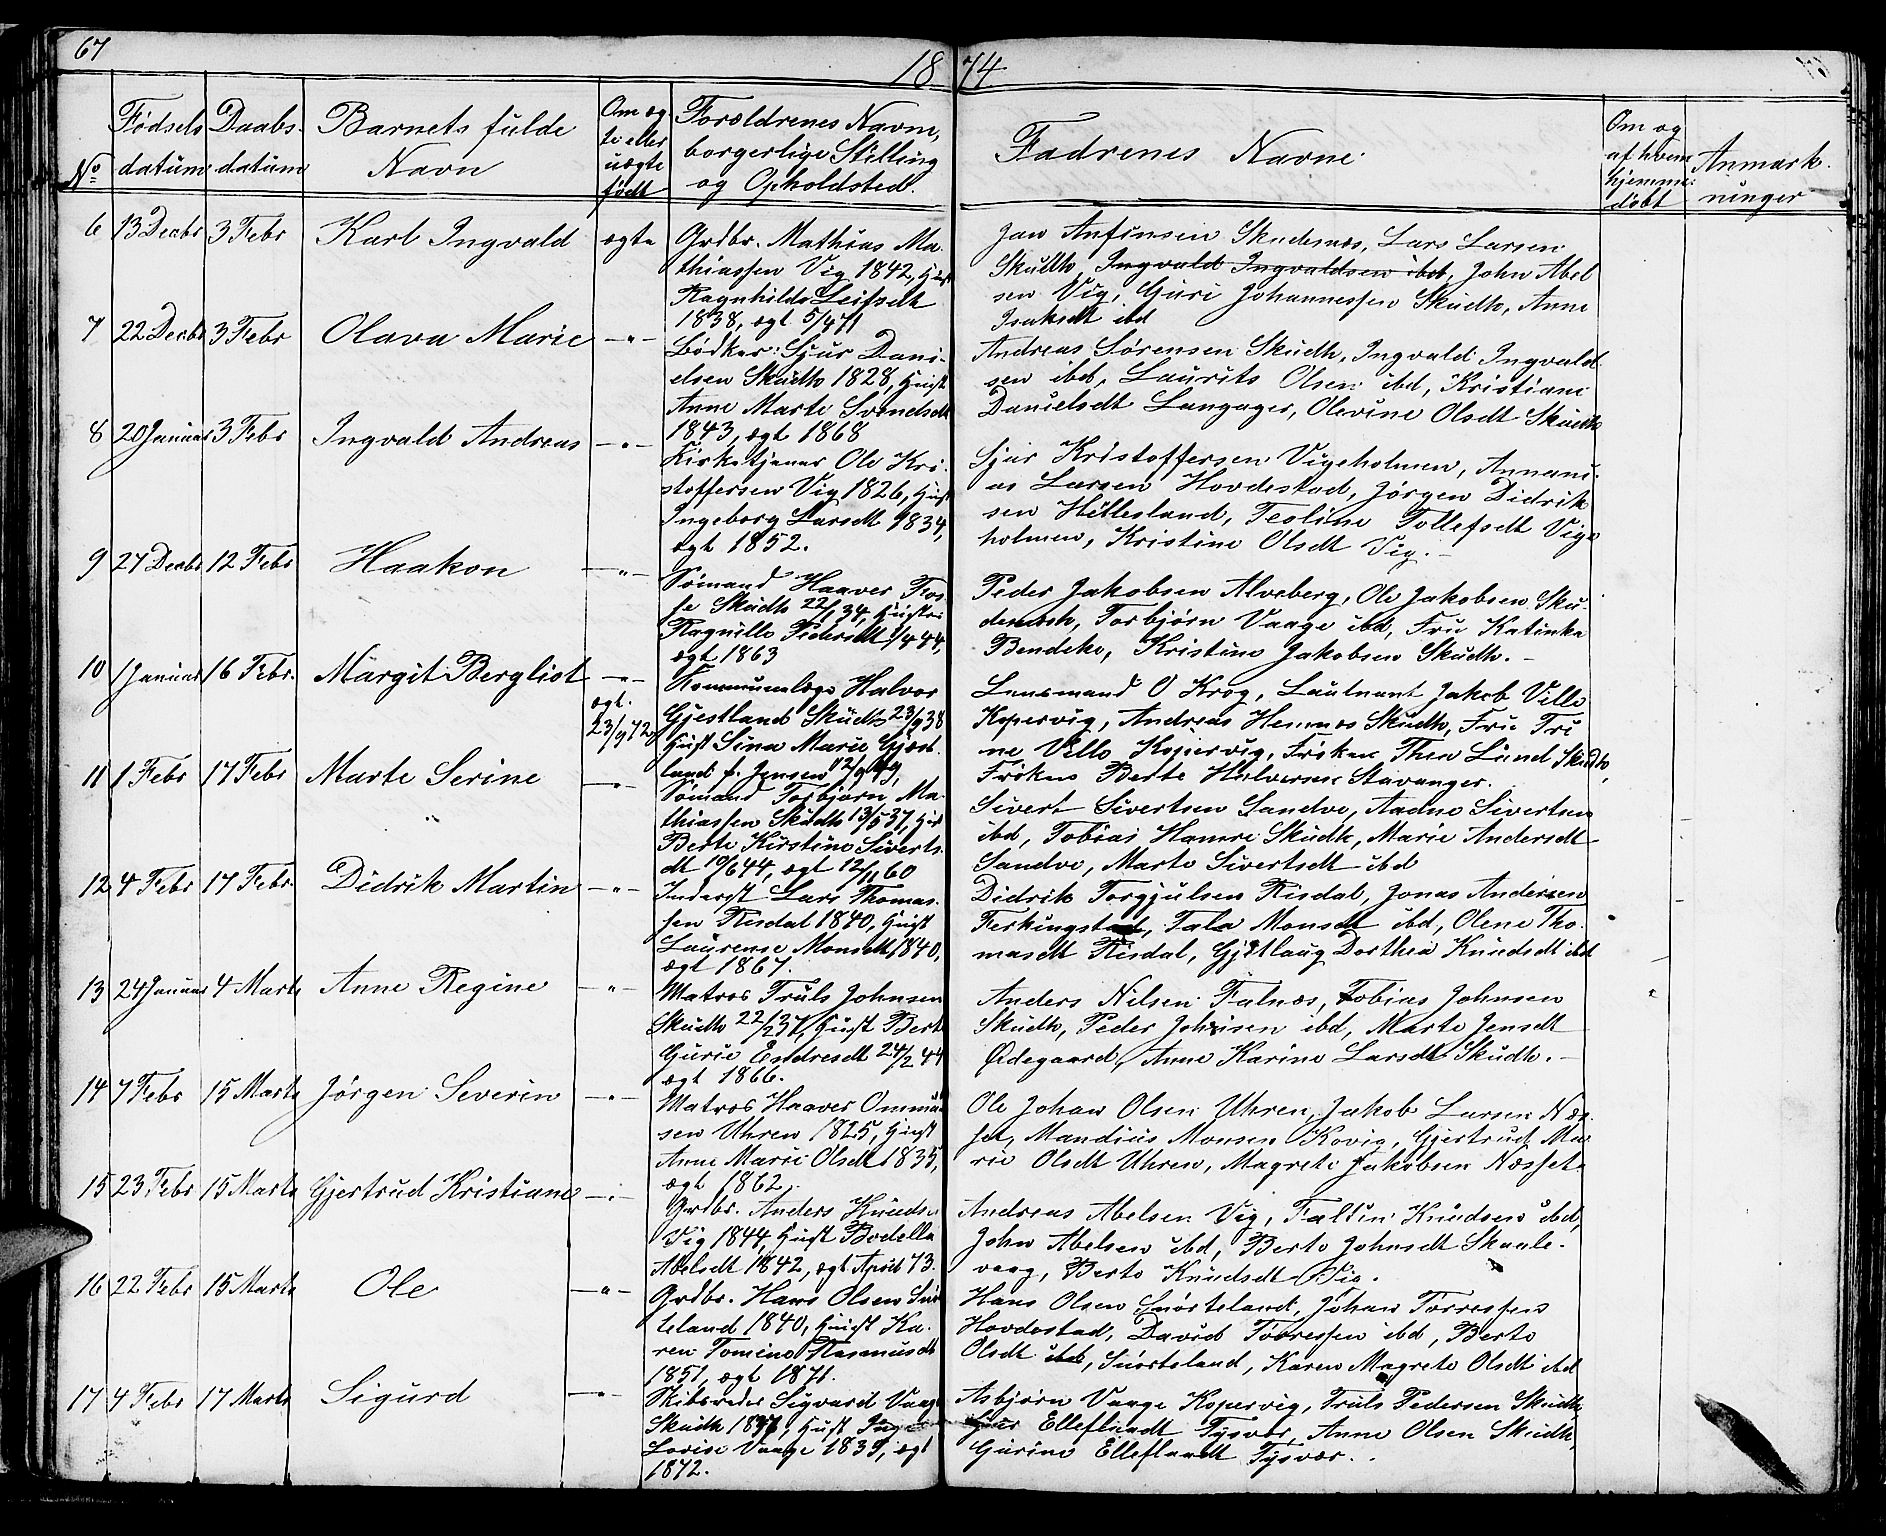 67
1874
No
Fødsels datum
Daabs- datum
Barnets fulde Navn
Om æg te eller uægte født
Forældrenes Navne, borgerlige Stilling og Opholdsted.
Fadrenes Navne
Om og af hvem hjemme: døbt
Anmærk. ninger
6 13 Decbr 3 Febr Karl Ingvald ægte
Grdbr. Mathias Ma.
thiassen Vig 1842, Hust
Ragnhilde Leifsdt
1838, ægt 5/4 71
Jan Anfinsen Skudesnæs, Lars Larsen
Skudh, Ingvald Ingvaldsen ibd, John Abel
sen Vig, Guri Johannessen Skudh, Anne
Isaksdt ibd
7 22 Decbr 3 Febr Olava Marie -"-
Bødker: Sjur Dani-
elsen Skudh 1828, Hust
Anne Marte Svendsdt
1843, ægt 1868
Andreas Sørensen Skudh, Ingvald Ingvald
sen ibd, Laurits Olsen ibd, Kristiane
Danielsdt Langager, Olevine Olsdt Skudh
8 20 Januar 3 Febr Ingvald Andreas -"-
Kirketjener Ole Kri.
stoffersen Vig 1826, Hust
Ingeborg Larsdt 1834,
ægt 1852.
Sjur Kristoffersen Vigeholmen, Annani-
as Larsen Hovdestad, Jørgen Didrik
sen Hillesland, Teoline Tollefsdt Vige
holmen, Kristine Olsdt Vig. -
9 27 Decbr 12 Febr Haakon -"-
Sømand Haaver Fos
se Skudh 22/1 34, Hustru
Ragnille Pedersdt 1/4 44,
ægt 1863
Peder Jakobsen Alveberg, Ole Jakobsen Sku-
desnesh, Torbjørn Vaage ibd, Fru Katinka
Bendeke, Kristine Jakobsen Skudh. -
10 1 Januar 16 Febr. Margit Bergliot -"-
ægt. 23/9 72
Kommunelæge Halvor
Gjestland Skudh 23/9 38
Hust Sina Marie Gjest.
land f. Jensen 12/9 49,
Lensmand O Krog, Lautnant Jakob Ville
Kopervig, Andreas Hemnæs Skudh, Fru Tri
ne Ville Kopervig, Frøken Thea Lund Skudh,
Frøken Berte Halversen Stavanger.
11 1 Febr 17 Febr Marte Serine -"-
Sømand Torbjørn Ma-
thiassen Skudh 13/5 37, Hust
Berte Kirstine Siverts.
dt 10/6 44, ægt 12/1 60
Sivert Sivertsen Sandve, Aadne Sivertsen
ibd, Tobias Hamre Skudh, Marie Andersdt
Sandve, Marte Sivertsdt ibd
12 4 Febr 17 Febr. Didrik Martin -"-
Inderst Lars Thomas.
sen Risdal 1840, Hust
Laurense Monsdt 1840,
ægt 1867.
Didrik Torgjulsen Risdal, Jonas Andersen
Ferkingstad, Tala Monsdt ibd, Olene Tho.
masdt Risdal, Gjitlaug Dorthea Knudsdt ibd
13 24 Januar 4 Marts Anne Regine -"-
Matros Truls Johnsen
Skudh 22/2 37, Hust Bert
Gurie Endresdt 24/2 44
ægt 1866.
Anders Nilsen Falnæs, Tobias Johnsen
Skudh, Peder Johnsen ibd, Marte Jensdt
Ødegaard, Anne Karine Larsdt Skudh. -
14 7 Febr 15 Marts Jørgen Severin -"-
Matros Haaver Ommund
sen Uhren 1825, Hust
Anne Marie Olsdt 1835,
ægt 1862.
Ole Johan Olsen Uhren, Jakob Larsen Næs.
set, Mandius Monsen Kovig, Gjertrud Ma-
rie Olsdt Uhren, Magrete Jakobsen Næsset
15 23 Febr 15 Marts Gjertrud Kristiane -"-
Grdbr. Anders Knuds.
Vig 1844, Hust Bodella
Abelsdt 1842, ægt April 73.
Andreas Abelsen Vig, Faltin Knudsen ibd,
John Abelsen ibd, Berte Johnsdt Skaale-
vaag, Berte Knudsdt Vig.
16 22 Febr 15 Marts Ole -"-
Grdbr. Hans Olsen Snør
teland 1840, Hust Ka-
ren Tomine Rasmusdt
1851, ægt 1871.
Hans Olsen Snørteland, Johan Torressen
Hovdestad, David Torressen ibd, Berte
Olsdt ibd, Snørteland, Karen Magrete Olsdt ibd
17 4 Febr 17 Marts Sigurd -"-
Skibsreder Sigvard Vaage
Skudh 1837, Hust Inge
Lovise Vaage 1839, ægt
1872.
Asbjørn Vaage Kopervig, Truls Pedersen Skudh,
Elleflaadt Tysvær, Anne Olsen Skudh,
Gurine Elleflaadt Tysvær.